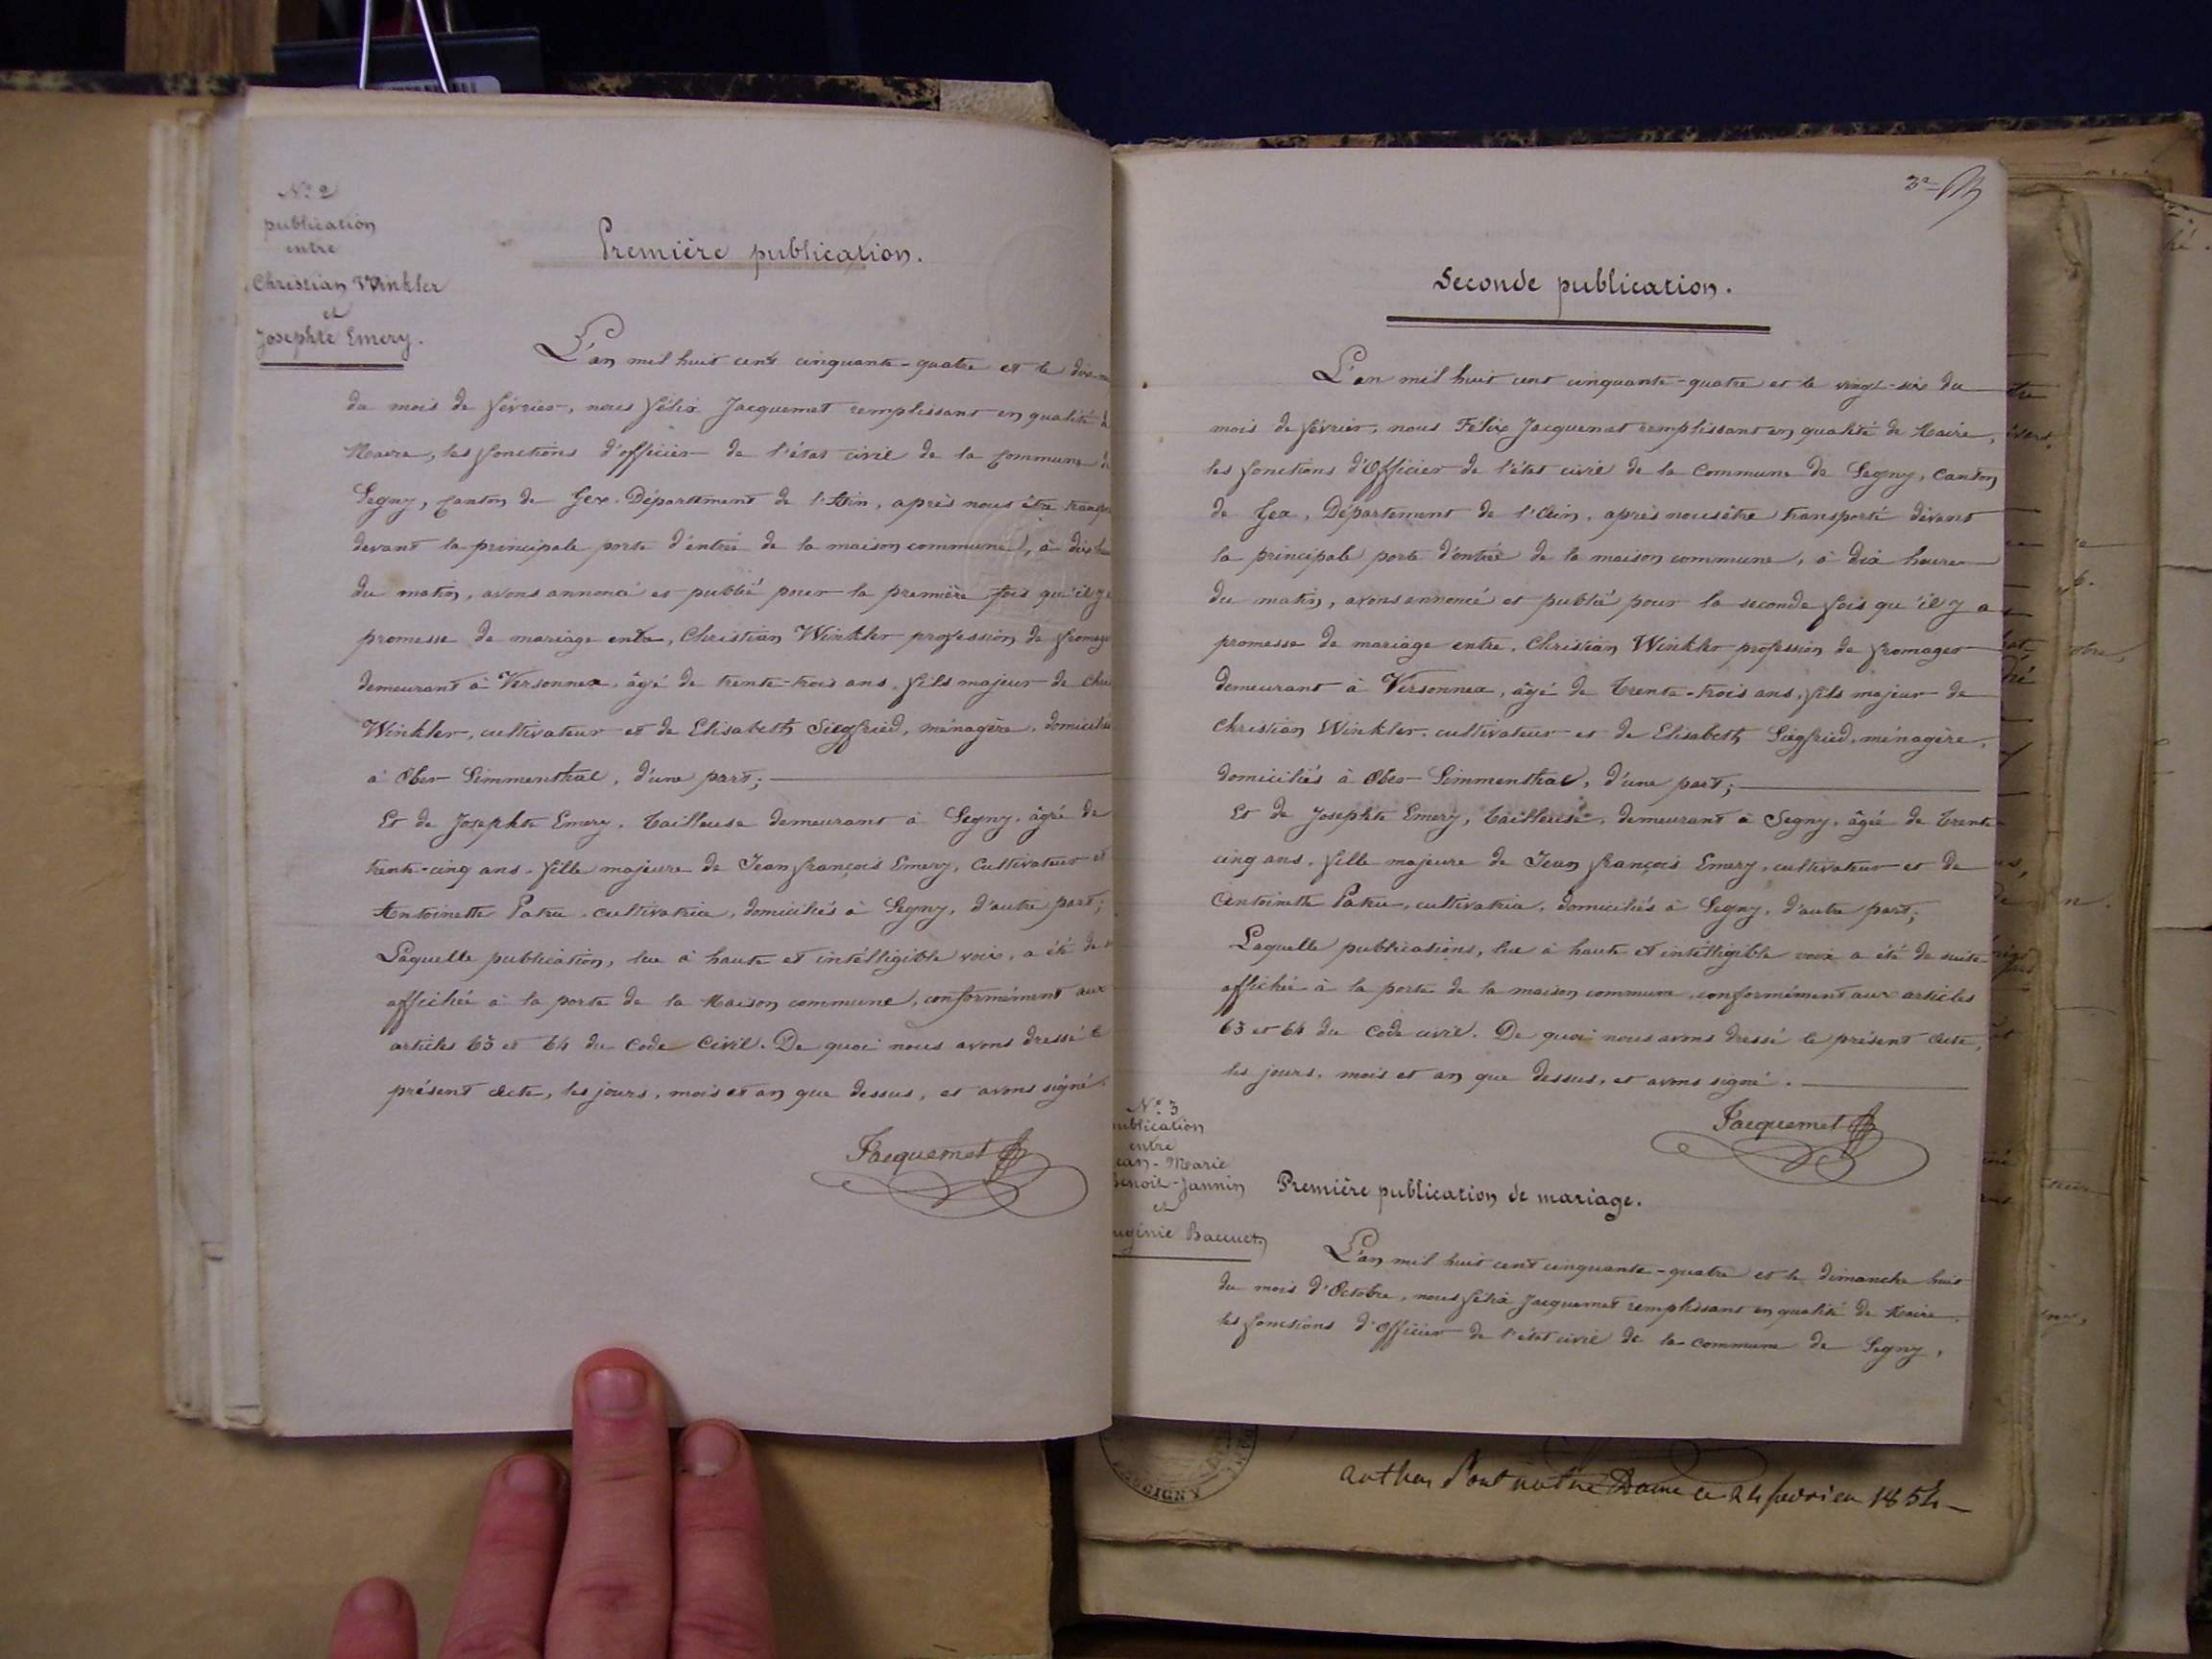 N.º 2
publication
entre
Christian Winkler
et
Josephte Emery.
Première publication.
L'an mil huit cent cinquante-quatre et le dix-
du mois de février, nous Félix Jacquemet remplissant en qualité de
Maire, les fonctions d'officier de l'état civil de la Commune de
Segny, Canton de Gex. Département de l'Ain, après nous être transpor
devant la principale porte d'entrée de la maison commune, à dix heu
du matin, avons annoncé et publié pour la première fois qu'il y a
promesse de mariage entre, Christian Winkler profession de fromage
demeurant à Versonnex, âgé de trente-trois ans, fils majeur de Chri
Winkler, cultivateur et de Elisabeth Siegfried, ménagère, domiciliés
à Ober Simmenthal, d'une part;
Et de Josephte Emery, Tailleuse demeurant à Segny, âgée de
trente-cinq ans, fille majeure de Jean françois Emery, Cultivateur et
Antoinette Patru, cultivatrice, domiciliés à Segny, d'autre part;
Laquelle publication, lue à haute et intélligible voix, a été de
affichée à la porte de la Maison commune, conformément aux
articles 63 et 64 du Code Civil. De quoi nous avons dressé le
présent acte, les jours, mois et an que dessus, et avons signé.
Jacquemet
3e
Seconde publication.
L'an mil huit cent cinquante-quatre et le vingt-six du
mois de février, nous Félix Jacquemet remplissant en qualité de Maire,
les fonctions d'Officier de l'état civil de la Commune de Segny, Canton
de Gex, Département de l'Ain, après nous être transporté dévant
la principale porte d'entrée de la maison commune, à dix heures
du matin, avons annoncé et publié pour la seconde fois qu'il y a
promesse de mariage entre, Christian Winkler profession de fromager
demeurant à Versonnex, âgé de trente-trois ans, fils majeur de
Christian Winkler, cultivateur et de Elisabeth Siegfried, ménagère,
domiciliés à Ober Simmenthal, d'une part;
Et de Josephte Emery, Tailleuse, demeurant à Segny, âgée de trente-
cinq ans, fille majeure de Jean françois Emery, cultivateur et de
Antoinette Patru, cultivatrice, domiciliés à Segny, d'autre part;
Laquelle publications, lue à haute et intélligible voix a été de suite
affichée à la porte de la maison commune, conformément aux articles
63 et 64 du Code civil. De quoi nous avons dressé le présent acte,
les jours, mois et an que dessus, et avons signé.
Jacquemet
N.º 3
ublication
entre
ean-Marie
Benoit-Jannin
et
ugénie Baccuet
Première publication de mariage.
L'an mil huit cent cinquante-quatre et le dimanche huit
du mois d'Octobre, nous félix Jacquemet remplissant en qualité de Maire
les fonctions d'Officier de l'état civil de la commune de Segny,
notre Dame ce 24 fevrier 1854